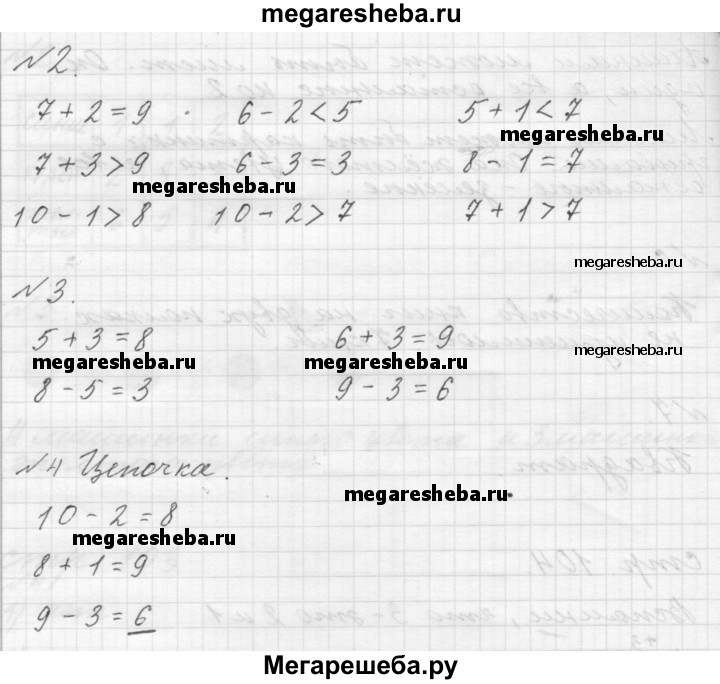 megaresheba.ru
№2.
7 + 2 = 9 6 - 2 < 5 5 + 1 < 7
megaresheba.ru
7 + 3 > 9 6 - 3 = 3 8 - 1 = 7
megaresheba.ru
10 - 1 > 8 10 - 2 > 7 7 + 1 > 7
megaresheba.ru
№3.
5 + 3 = 8 6 + 3 = 9
megaresheba.ru megaresheba.ru megaresheba.ru
8 - 5 = 3 9 - 3 = 6
№4 Цепочка.
megaresheba.ru
10 - 2 = 8
megaresheba.ru
8 + 1 = 9
9 - 3 = 6
Мегарешеба.ру